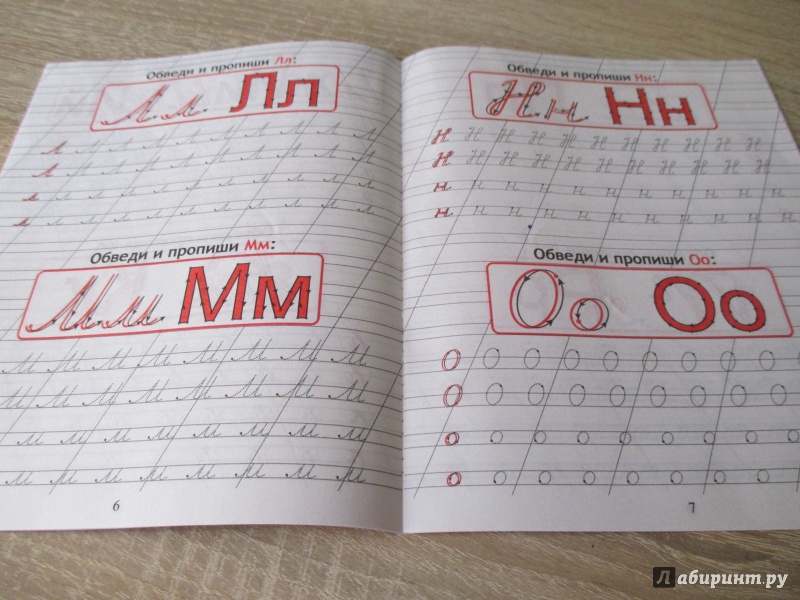 Обведи и пропиши Лл:
Лл Лл
Л Л Л Л Л Л Л Л Л Л
Л Л Л Л Л Л Л Л Л Л
л л л л л л л л л л
л л л л л л л л л л
Обведи и пропиши Мм:
Мм Мм
М М М М М М М М
М М М М М М М М
м м м м м м м м
м м м м м м м м
6
Обведи и пропиши Нн:
Нн Нн
Н Н Н Н Н Н Н Н Н Н Н
Н Н Н Н Н Н Н Н Н Н Н
н н н н н н н н н н н
н н н н н н н н н н
Обведи и пропиши Оо:
Оо Оо
О О О О О О О О О
О О О О О О О О О
о о о о о о о о о
о о о о о о о о о
7
Лабиринт.ру